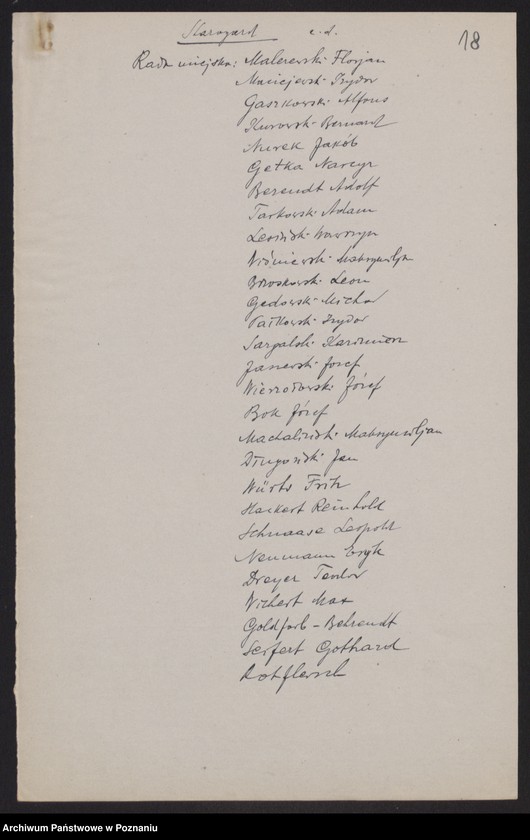 Starogard c.d. 18
Rada miejska: Malerewski Florjan
Maciejewski Izydor
Gaszkowski Alfons
Kurowski Bernard
Nurek Jakób
Getka Narcyz
Berendt Adolf
Tarkowski Adam
Lesiński Wawrzyn
Wiśniewski Maksymiljn
Brzoskowski Leon
Gedowski Michał
Pałkowski Izydor
Sargalski Kazimierz
Janewski Józef
Wierzchowski Józef
Bok Józef
Madaliński Maksymiljan
Długoński Jan
Würtz Fritz
Hackert Reinhold
Schnaase Leopold
Neumann Eryk
Dreyer Teodor
Wichert Max
Goldfarb - Behrendt
Seifert Gothard
Rotflersch
Archiwum Państwowe w Poznaniu